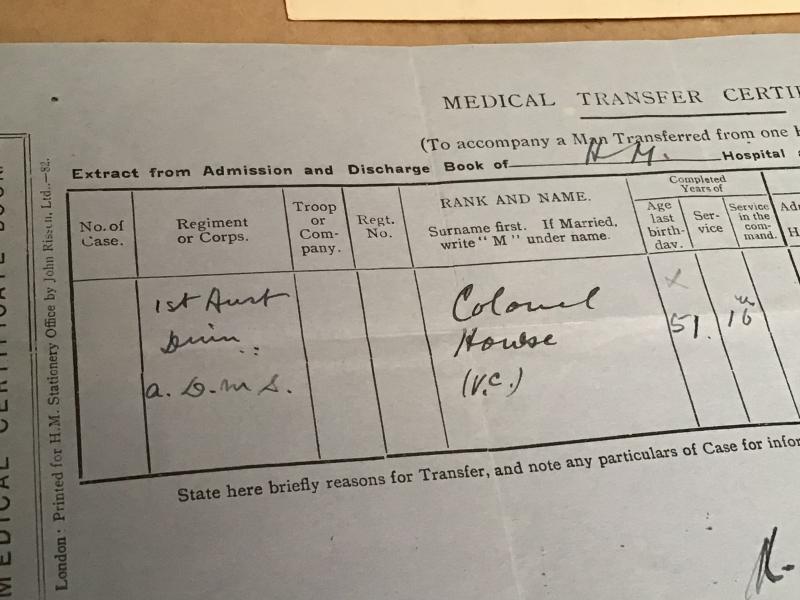 MEDICAL TRANSFER CERTIF
(To accompany a Man Transferred from one H
Extract from Admission and Discharge Book of H.M. Hospital a
No. of Case.
Regiment or Corps.
Troop or Com- pany.
Regt. No.
RANK AND NAME.
Surname first. If Married, write "M" under name.
Completed Years of
Age last birth- day.
Ser- vice
Service in the com- mand.
Ad
H
1st Aust
Divn
a. D. M. S.
Colonel
Howse
(V.C.)
x
51.
16
State here briefly reasons for Transfer, and note any particulars of Case for infor
London: Printed for H.M. Stationery Office by John Rissen, Ltd.—82.
MEDICAL CERTIFICATE BOOK